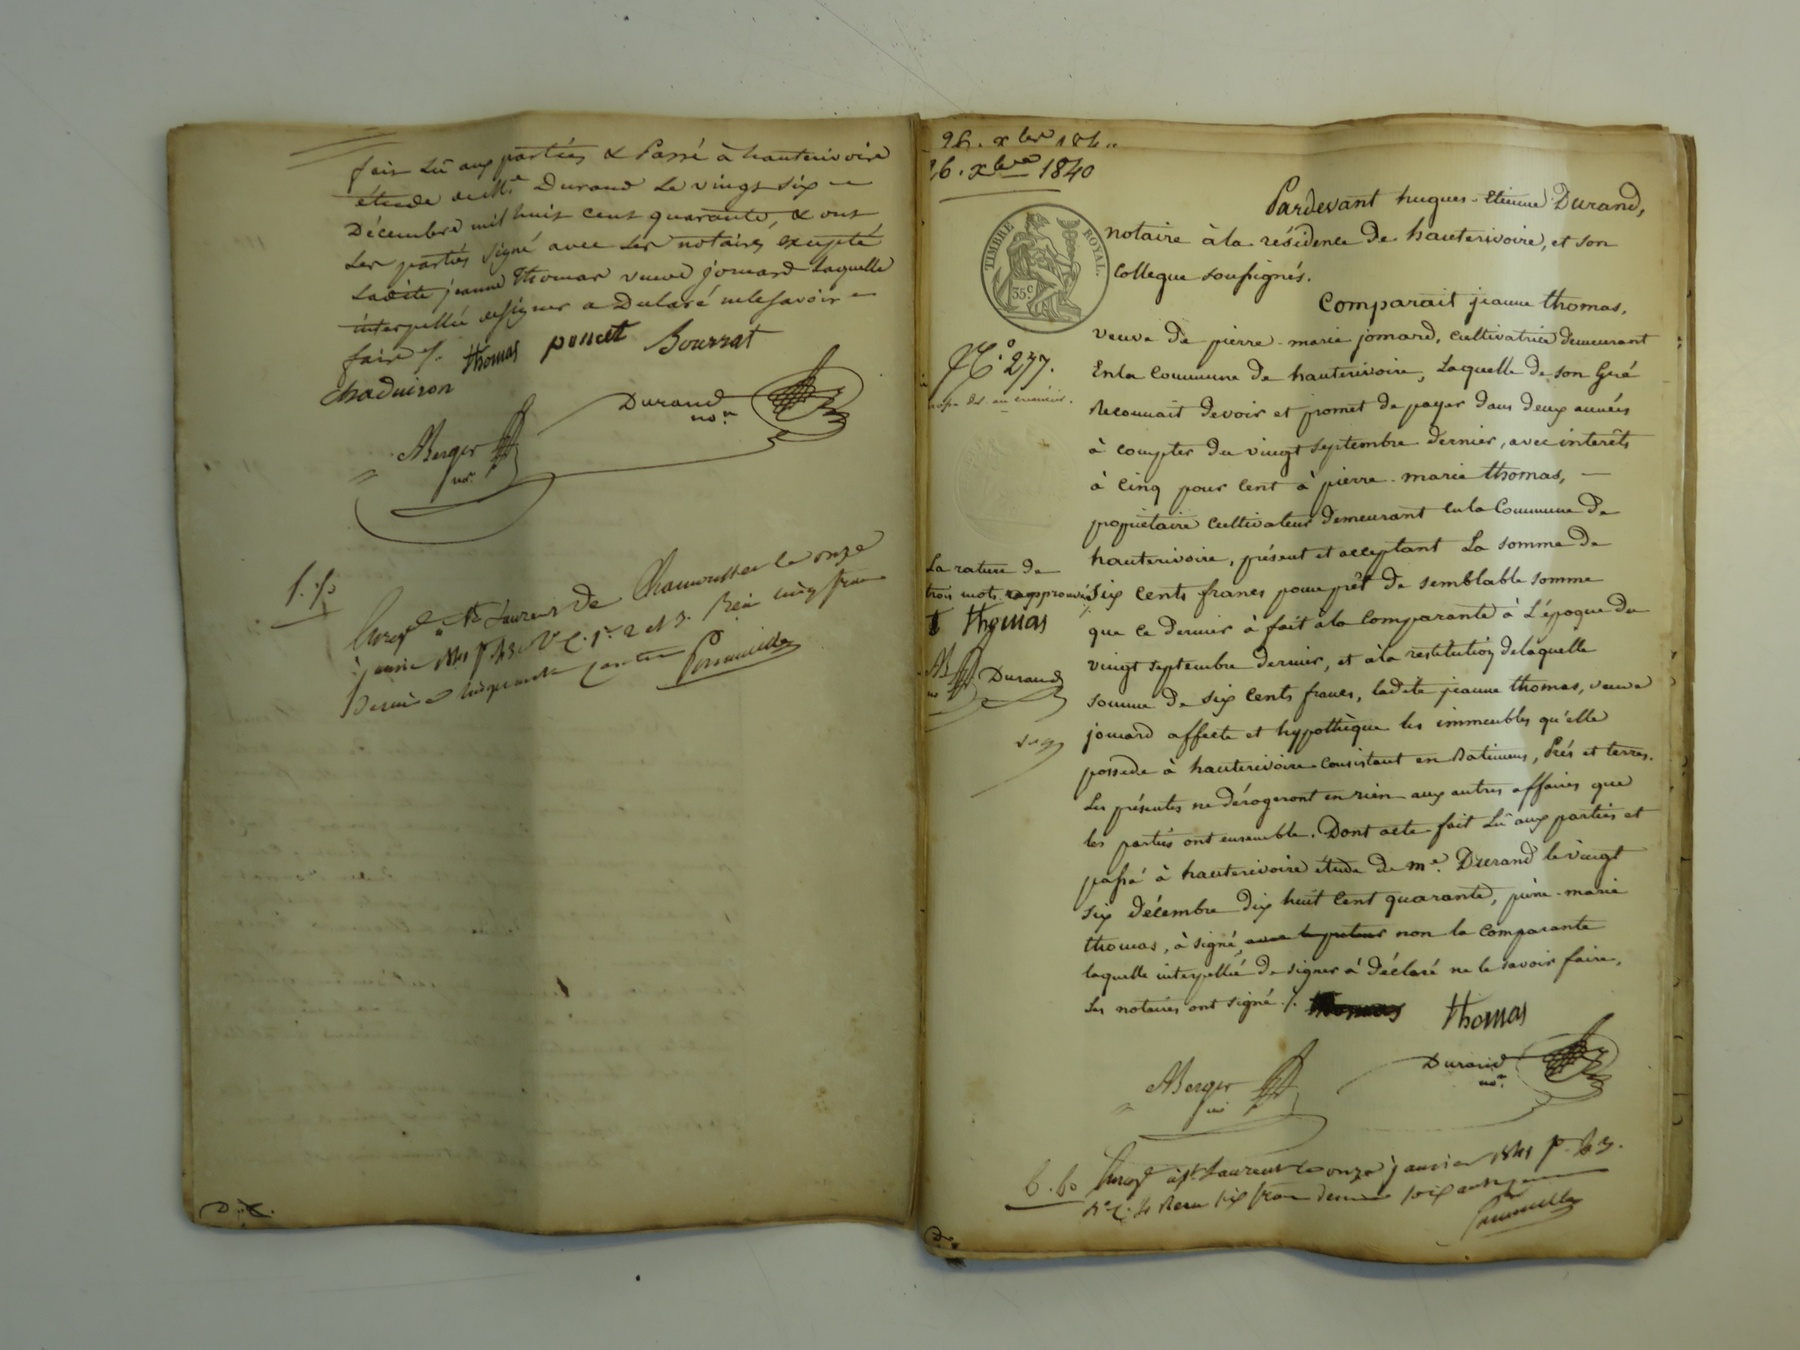 fait lû aux parties & Passé à hauterivoire
étude de Me Durand le vingt six
Décembre mil huit cent quarante, & ont
les parties signé avec les notaires, excepté
Ladite jeanne Thomas veuve jomard laquelle
interpellée de signer a Déclaré ne le savoir
faire ./.
thomas poncet Bourrat
chaduiron
Durand
no.re
ABerger
no.
5.50
Enregé à St Laurent De Chamousset le onze
janvier 1841 fo 43 Vo C. 1re 2 et 3. Reçu cinq francs
Décime cinquante centimes
26. xbre 1840
26. xbre 1840
TIMBRE ROYAL.
35c
Pardevant hugues-Etienne Durand,
notaire à la résidence de hauterivoire, et son
Collegue soussignés.
Comparait jeanne thomas,
veuve de pierre-marie jomard, cultivatrice demeurant
No. 277.
En la Commune de hauterivoire, Laquelle de son Gré
Reconnait devoir et promet de payer dans deux années
à compter du vingt septembre dernier, avec interêts
à cinq pour cent à pierre-marie thomas,
propriétaire cultivateur demeurant en la Commune de
hauterivoire, présent et acceptant La somme de
La rature de
trois mots approuvée
thomas
Durand
Six cents francs pour prêt de semblable somme
que ce dernier à fait à la Comparante à L'époque du
vingt septembre dernier, et à la restitution de laquelle
somme de six cents francs, ladite jeanne thomas, veuve
jomard affecte et hypothèque les immeubles qu'elle
possede à hauterivoire Consistant en Batimens, Prés et terres.
Les présentes ne dérogeront en rien aux autres affaires que
les parties ont ensemble. Dont acte fait Lû aux parties et
passé à hauterivoire étude de me. Durand le vingt
six décembre dix huit cent quarante, pierre-marie
thomas, à signé, non la comparante
laquelle interpellée de signer à déclaré ne le savoir faire,
Les notaires ont signé ./. thomas thomas
Durand
no.re
ABerger
no.
6.60
Enregé à St Laurent le onze janvier 1841 fo 43.
Vo C. 4 Reçu six francs décime soixante centimes